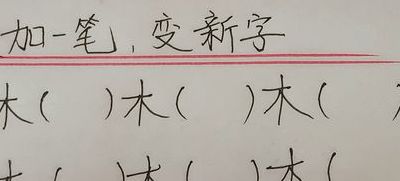 加一笔,变新字
木( )木( )木( )
木( )木( )木(